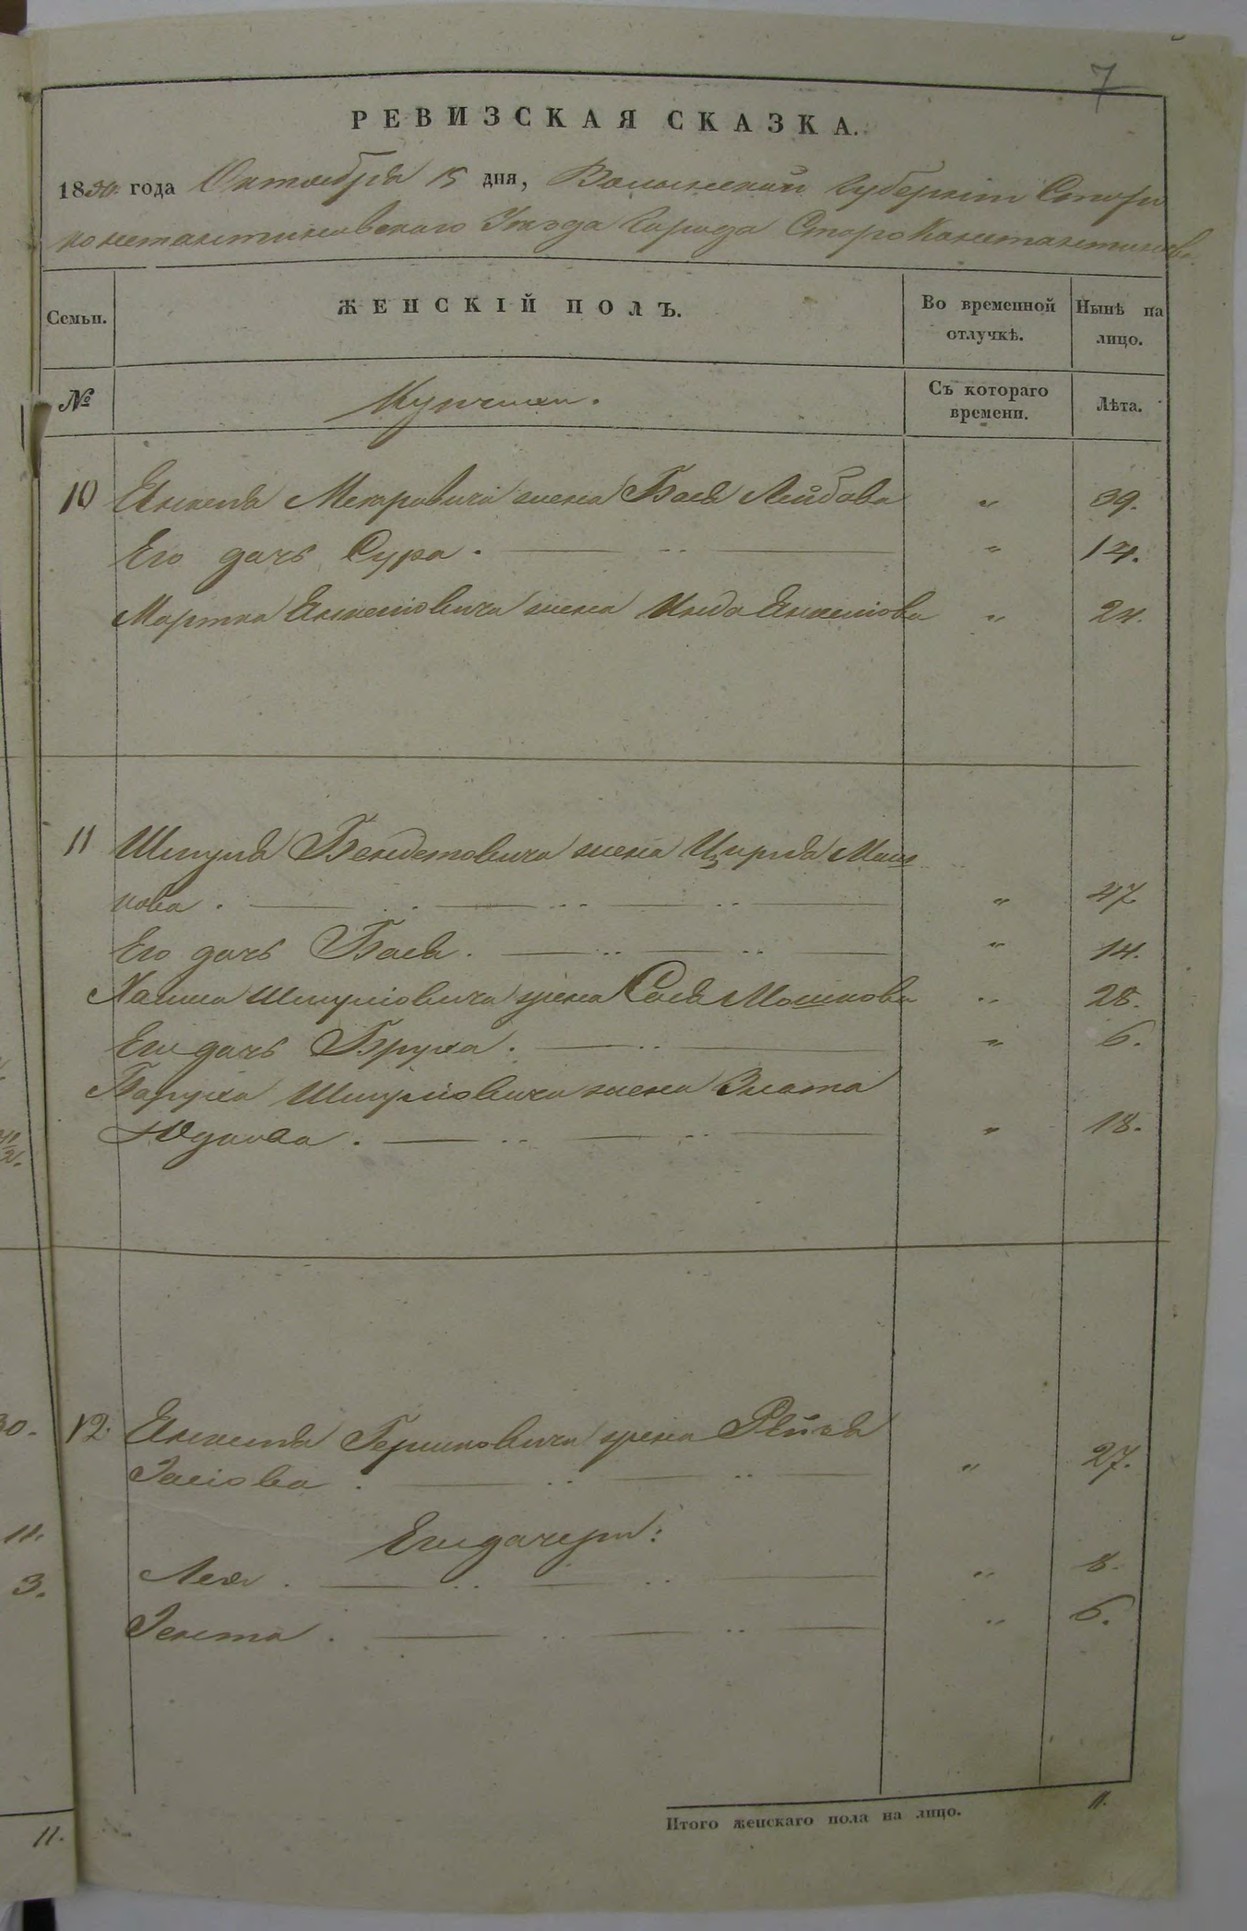 7
РЕВИЗСКАЯ СКАЗКА.
1850 года Октября 15 дня, Волынской Губерніи Старо
константиновскаго Уезда Города Староконстантинова
Семьи. ЖЕНСКІЙ ПОЛЪ. Во временной отлучкѣ. Нынѣ на лицо.
№ Купчихи. Съ котораго времени. Лѣта.
10 Янкеля Меяровича жена Бася Лейбова " 39.
Его дочь Сура. " 14.
Мортка Янкеліовича жена Инда Янкеліова " 24.
11 Шмуля Бендетовича жена Цирля Мош
кова. " 47
Его дочь Бася. " 14.
Хаима Шмуліовича жена Сося Мошкова " 28.
Его дочь Бруха. " 6.
Боруха Шмуліовича жена Злата
Юдкова. " 18.
12. Янкеля Гершковича жена Рейзя
Іосіова. " 27.
Его дочери:
Лея. " 8.
Іента. " 6.
Итого женскаго пола на лицо. 11.
30.
11.
3.
11.